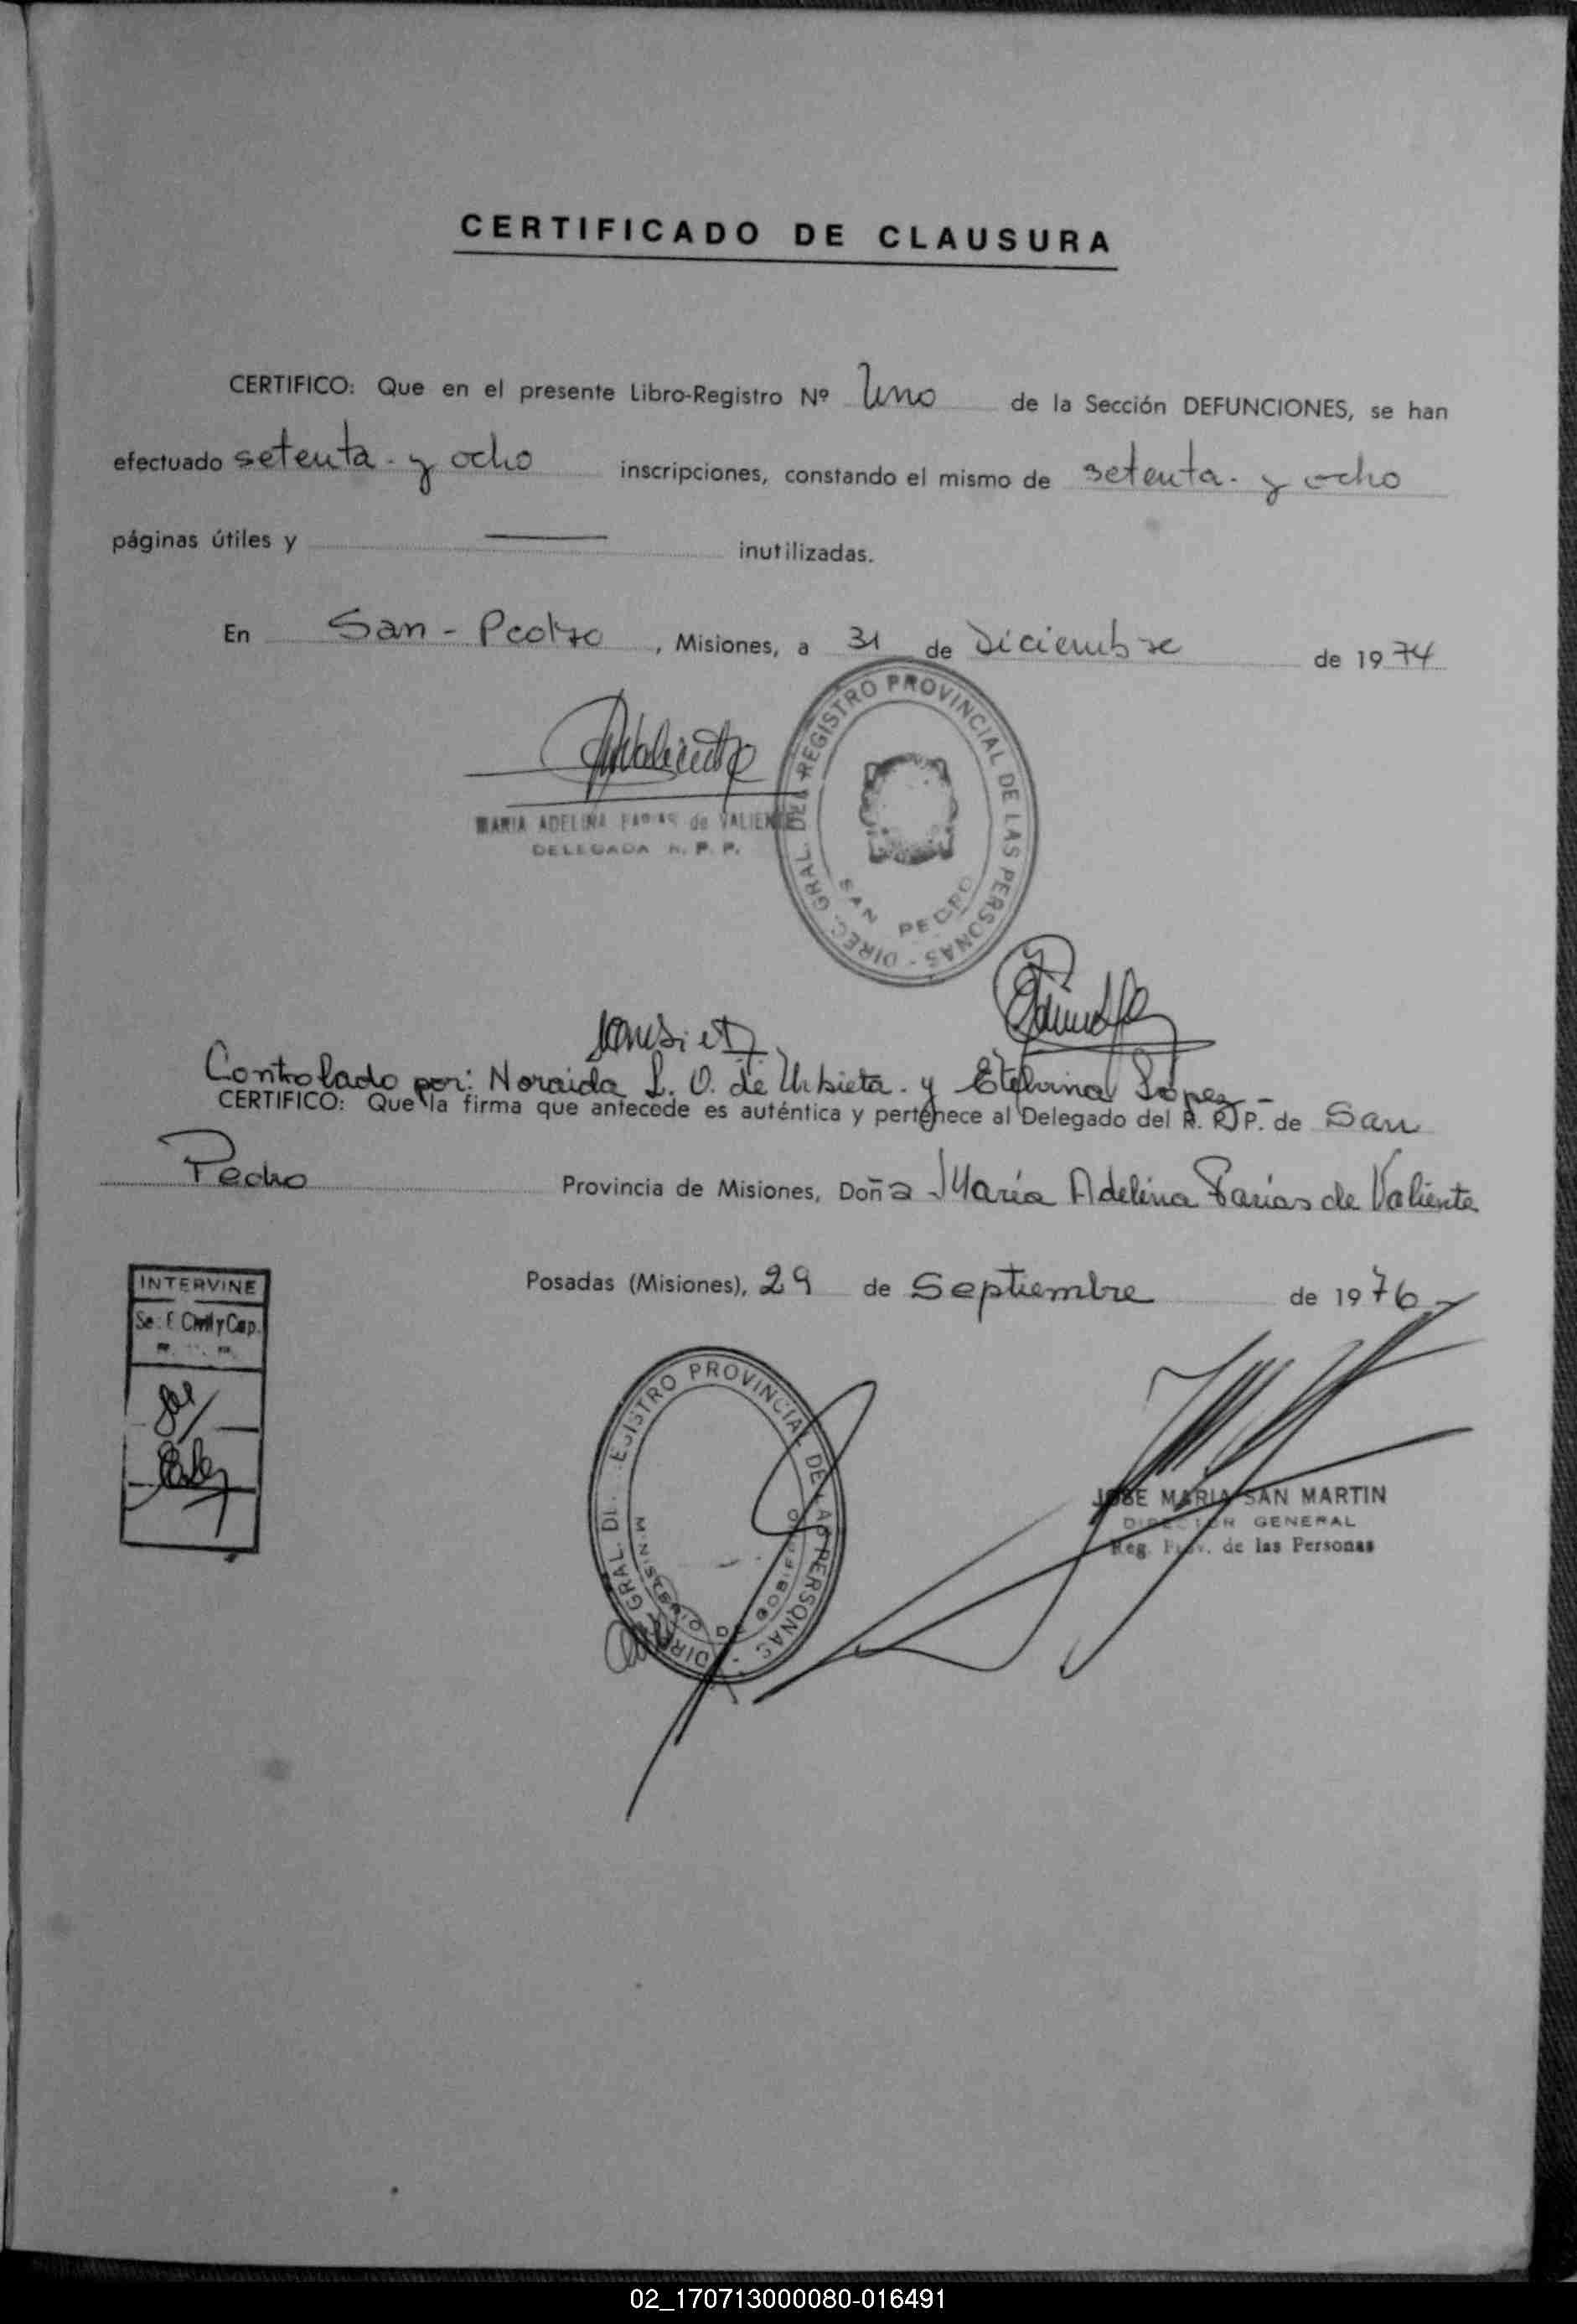 CERTIFICADO DE CLAUSURA
CERTIFICO: Que en el presente Libro-Registro Nº Uno de la Sección DEFUNCIONES, se han
efectuado setenta y ocho inscripciones, constando el mismo de setenta y ocho
páginas útiles y — inutilizadas.
En San-Pedro, Misiones, a 31 de Diciembre de 1974
MARIA ADELINA FARIAS de VALIENTE
DELEGADA R. P. P.
DIREC. GRAL. DEL REGISTRO PROVINCIAL DE LAS PERSONAS -
SAN PEDRO
Controlado por: Noraida L. O. de Urbieta. y Etelvina López-
CERTIFICO: Que la firma que antecede es auténtica y pertenece al Delegado del R. P. P. de San
Pedro Provincia de Misiones, Doña María Adelina Farias de Valiente
Posadas (Misiones), 29 de Septiembre de 1976
INTERVINE
Civil y Cap.
DIREC. GRAL. DEL REGISTRO PROVINCIAL DE LAS PERSONAS -
MINISTERIO DE GOBIERNO
JOSE MARIA SAN MARTIN
DIRECTOR GENERAL
Reg. Prov. de las Personas
02_170713000080-016491